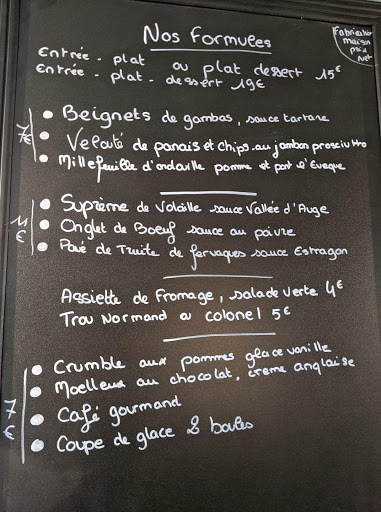 Nos Formules
Fabrication
maison
prix
Net
Entrée - plat ou plat dessert 15€
Entrée - plat - dessert 19€
7€
• Beignets de gambas, sauce tartare
• Velouté de panais et chips au jambon prosciutto
• Millefeuille d'andouille pomme et pont l'Eveque
11
€
• Suprême de Volaille sauce Vallée d'Auge
• Onglet de Boeuf sauce au poivre
• Pavé de Truite de fervaques sauce Estragon
Assiette de Fromage, salade verte 4€
Trou Normand ou colonel 5€
7
€
• Crumble aux pommes glace vanille
• Moelleux au chocolat, creme anglaise
• Café gourmand
• Coupe de glace 2 boules